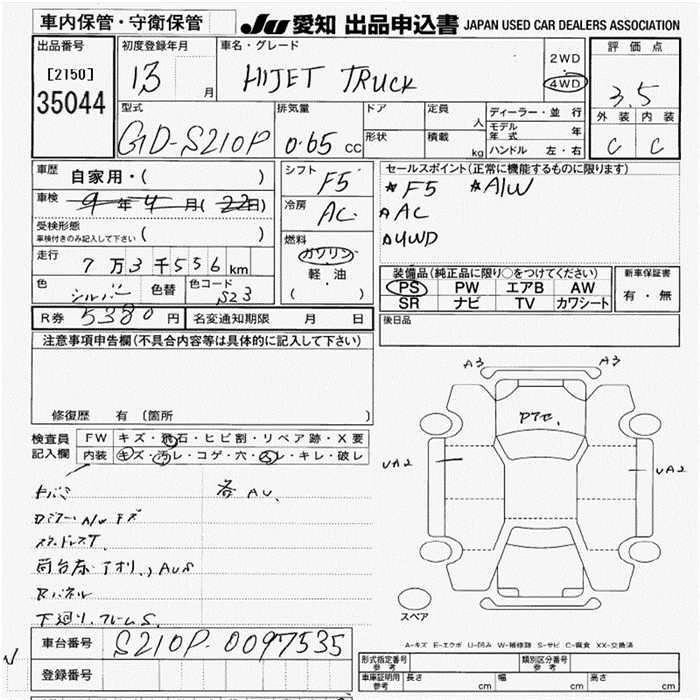 車内保管・守衛保管
JU 愛知 出品申込書 JAPAN USED CAR DEALERS ASSOCIATION
出品番号
[2150]
35044
初度登録年月
13 月
車名・グレード
HIJET TRUCK
2WD
4WD
評価点
3.5
外装 内装
C C
型式
GD-S210P
排気量
0.65 CC
ドア
形状
定員
人
積載
kg
ディーラー・並行
モデル年式 年
ハンドル 左・右
車歴
自家用・( )
車検
9年4月(22日)
受検形態
車検付きのみ記入して下さい ( )
走行
7万3千556km
色
シルバー
色替
色コード
S23
シフト
F5
冷房
AC
燃料
ガソリン
軽・油
( )
セールスポイント(正常に機能するものに限ります)
★F5 ★A/W
★AC
★4WD
装備品(純正品に限り○をつけてください)
PS PW エアB AW
SR ナビ TV カワシート
新車保証書
有・無
R券 5380円
名変通知期限 月 日
後日品
注意事項申告欄(不具合内容等は具体的に記入して下さい)
修復歴 有(箇所 )
検査員記入欄
FW キズ・飛石・ヒビ割・リペア跡・X要
内装 キズ・汚レ・コゲ・穴・スレ・キレ・破レ
各AU、
下廻り、フレームS.
A3 A3
UA2 UA2
スペア
A-キズ E-エクボ U-凹み W-補修跡 S-サビ C-腐食 XX-交換済
車台番号
S210P-0097535
登録番号
形式指定番号参考
類別区分番号参考
車庫証明用参考
長さ cm
幅 cm
高さ cm